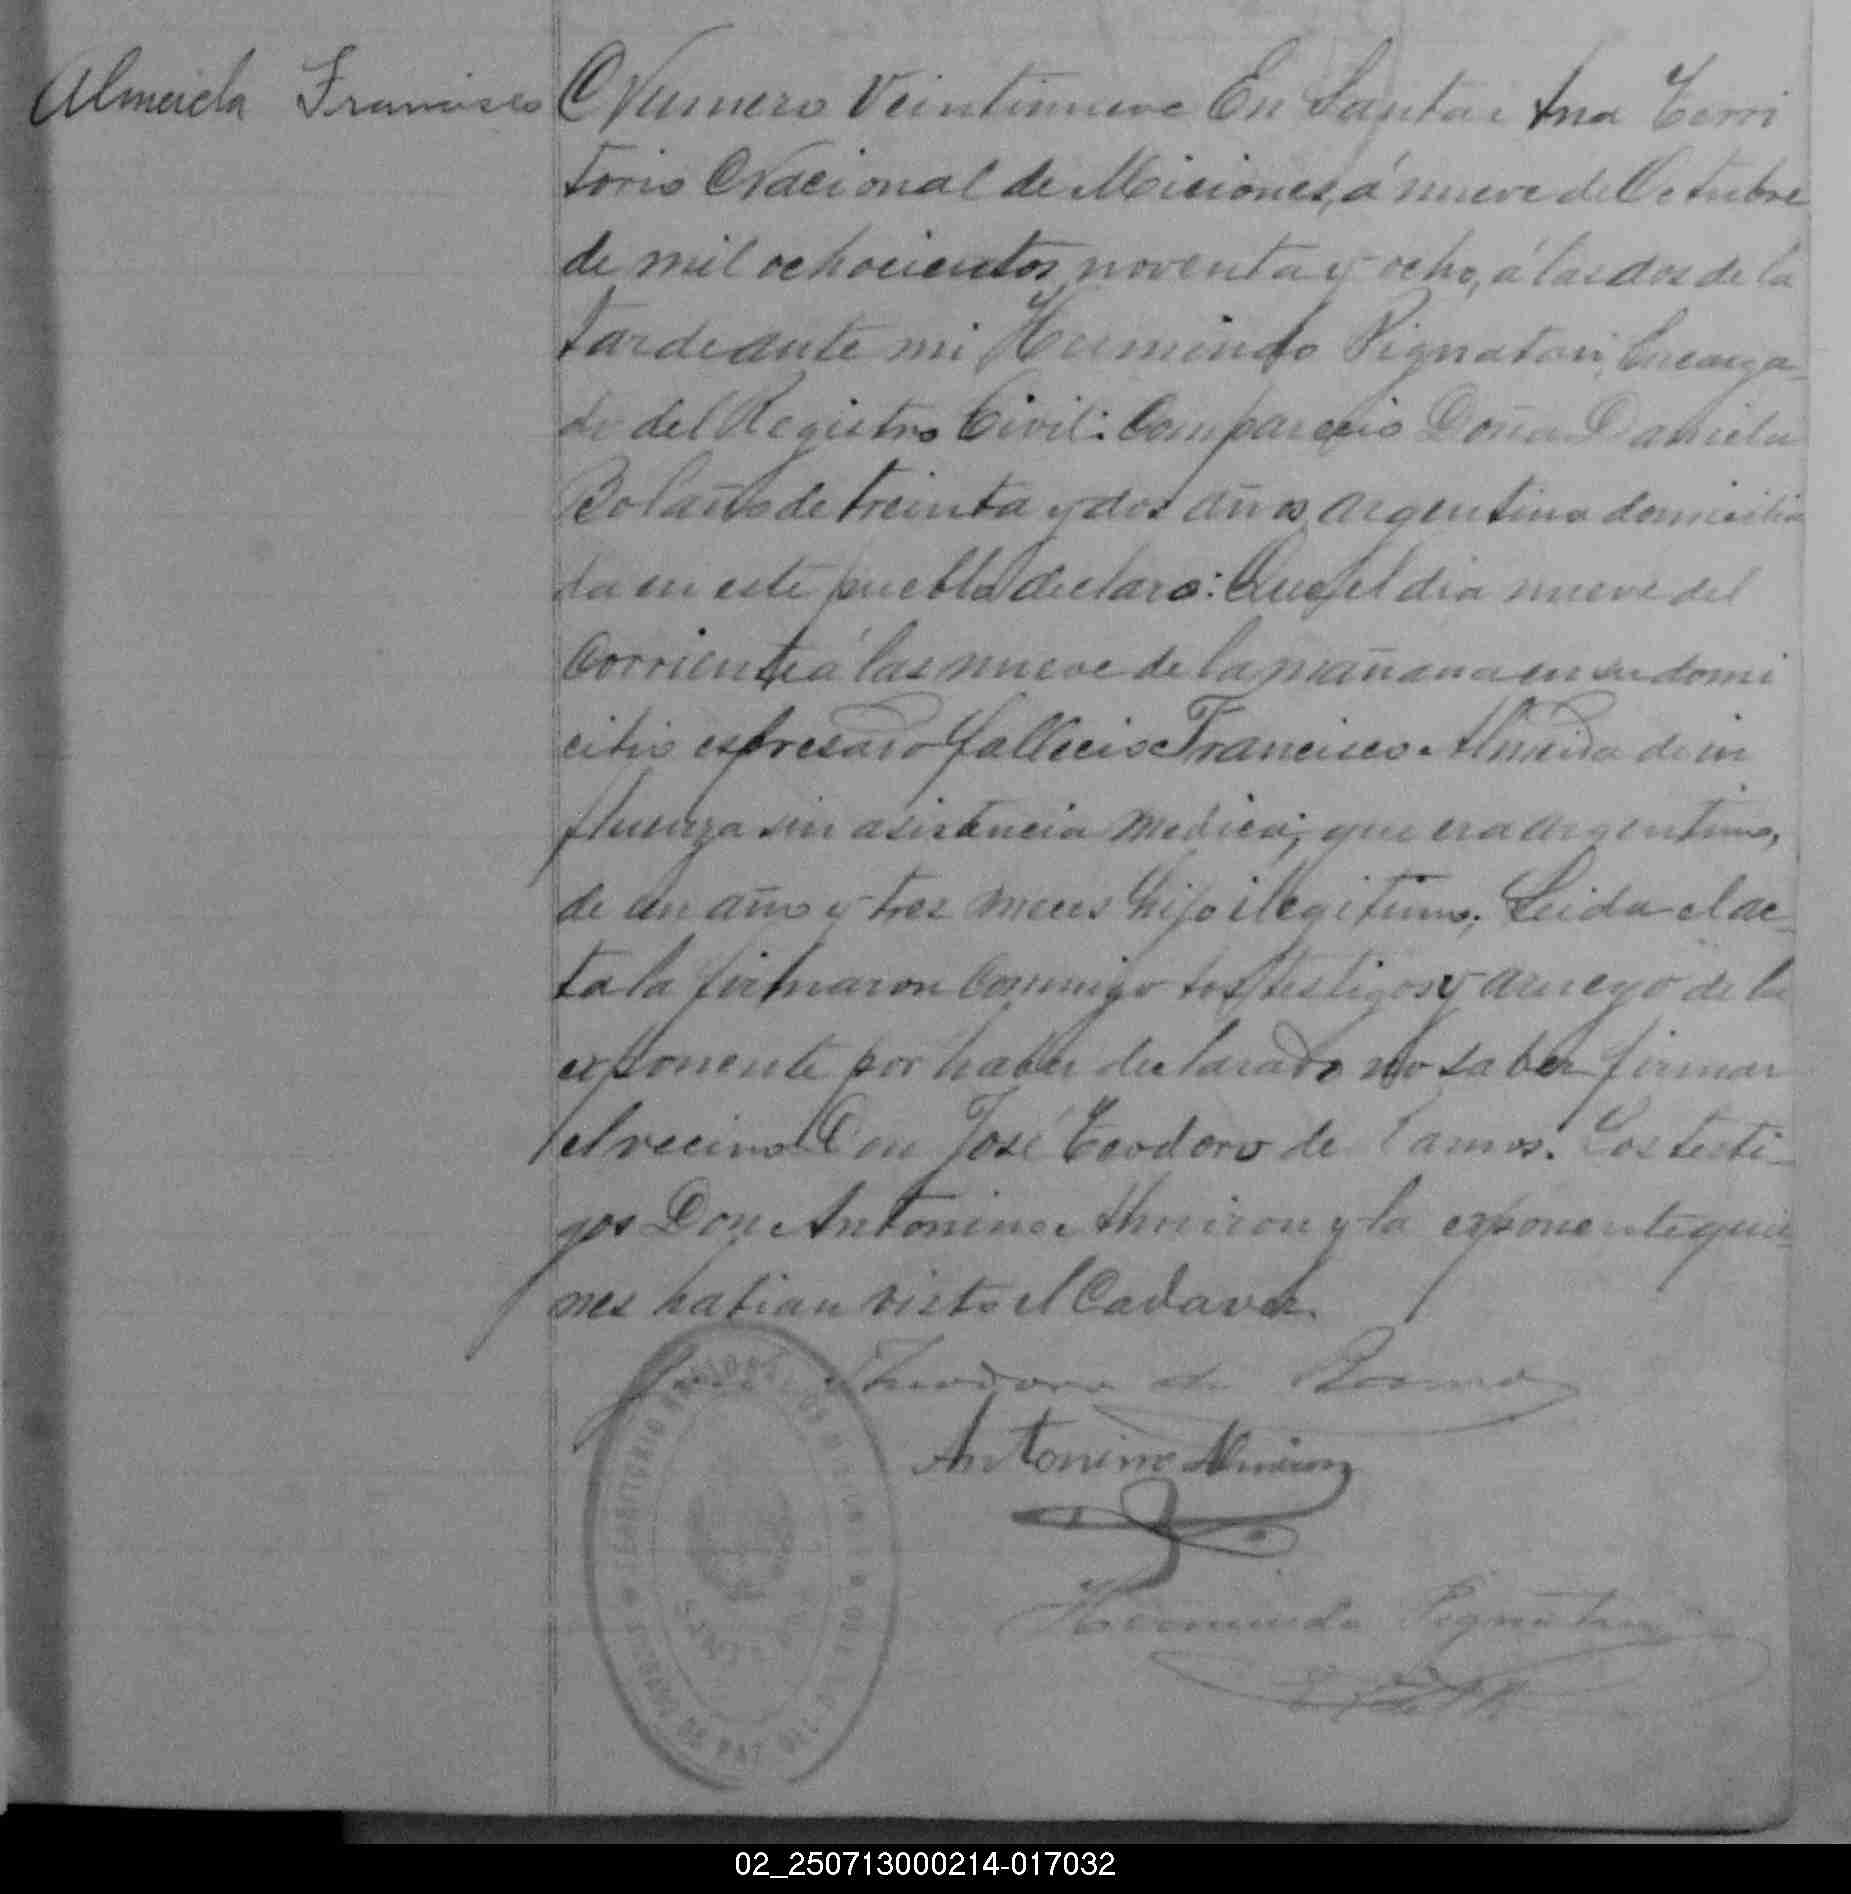 Almeida Francisco
Numero Veintinueve En Santa Ana Terri
torio Nacional de Misiones, á nueve de Octubre
de mil ochocientos noventa y ocho, á las dos de la
tarde ante mi Hermindo Pignatari, Encarga-
do del Registro Civil: Comparecio Doña Daniela
Bolaño de treinta y dos años argentina domicilia
da en este pueblo declaro: Que el dia nueve del
Corriente á las nueve de la mañana en su domi
cilio espresado fallecio Francisco Almeida de in
fluenza sin asistencia medica; que era argentino,
de un año y tres meces hijo ilegitimo; Leida el ac-
ta la firmaron conmigo los testigos y aruego de la
exponente por haber declarado no saber firmar
el vecino Don José Teodoro de Ramos. Los testi-
gos Don Antonino Almiron y la exponente quie-
nes habian visto el Cadaver.
José Theodoro de Ramos
Antonino Almiron
Hermindo Pignatari
TERRITORIO NACIONAL DE MISIONES
JUZGADO DE PAZ DEL
SANTA ANA
02_250713000214-017032